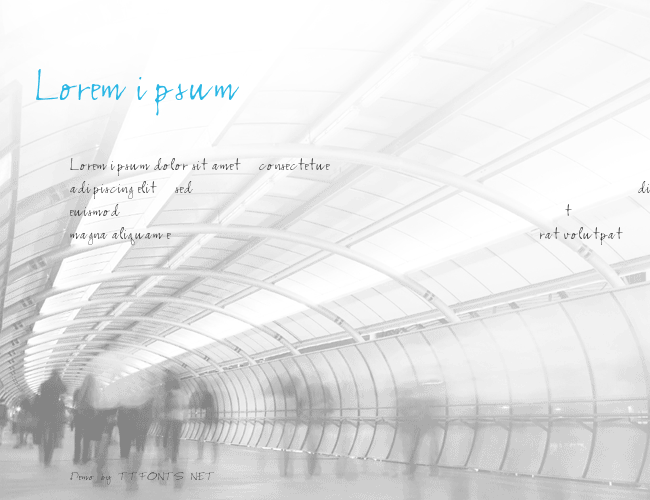 Lorem ipsum
Lorem ipsum dolor sit amet consectetue
adipiscing elit sed di
euismod t
magna aliquam e rat volutpat
Demo by TTFONTS NET